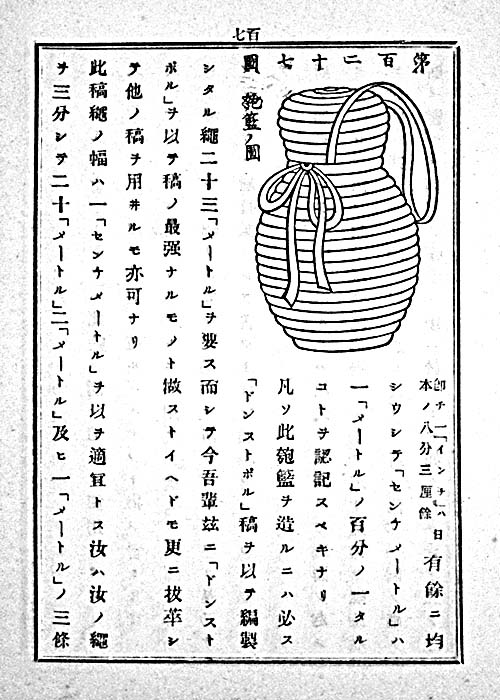 百七
第百二十七圖
匏籃ノ圖
卽チ一「インチ」ハ日本ノ八分三厘餘
有餘ニ均
シウシテ「センチメートル」ハ
一「メートル」ノ百分ノ一タル
コトヲ認記スベキナリ
凡ソ此匏籃ヲ造ルニハ必ス
「ドンストボル」稿ヲ以テ編製
シタル繩二十三「メートル」ヲ要ス而シテ今吾輩玆ニ「ドンスト
ボル」ヲ以テ稿ノ最强ナルモノト做ストイヘドモ更ニ拔萃シ
テ他ノ稿ヲ用井ルモ亦可ナリ
此稿繩ノ幅ハ一「センチメートル」ヲ以テ適宜トス汝ハ汝ノ繩
ヲ三分シテ二十「メートル」二「メートル」及ヒ一「メートル」ノ三條